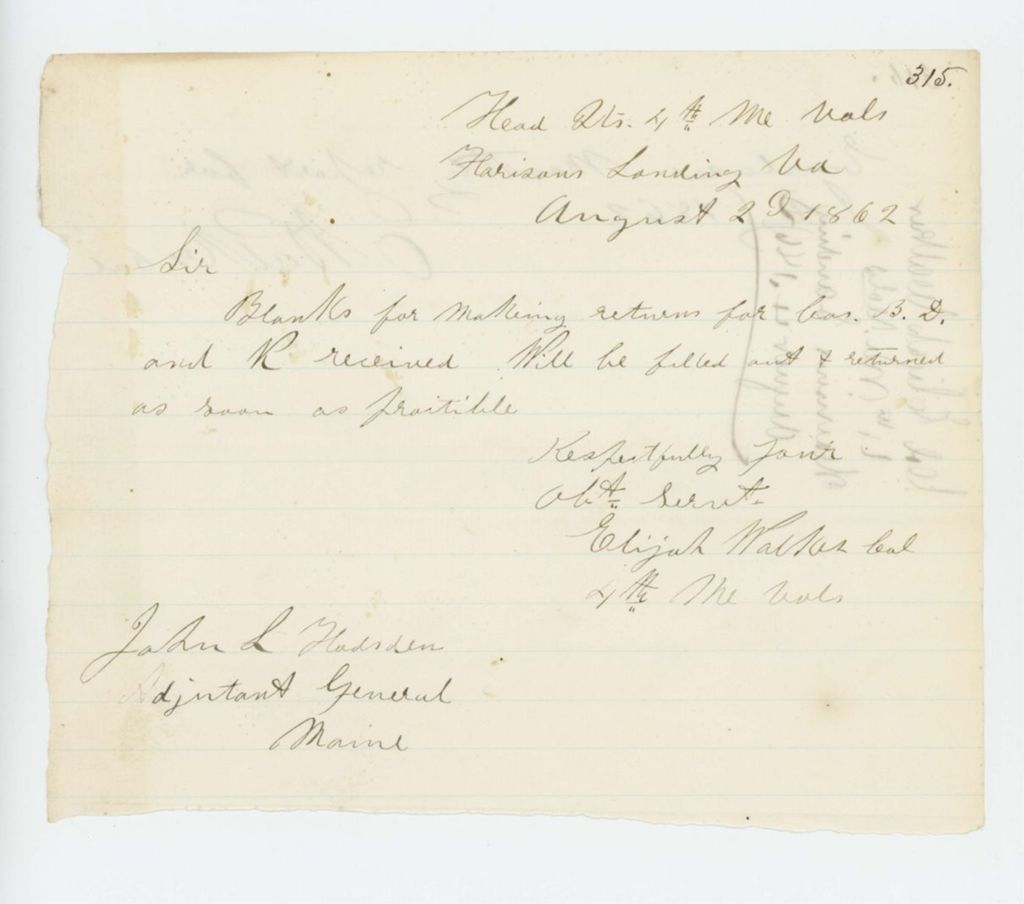 315.
Head Qts. 4th Me Vols
Harisons Landing Va
August 2d 1862
Sir
Blanks for making returns for Cos. B. D.
and K received Will be filled out & returned
as soon as practible
Respectfully Your
Obt Servt
Elijah Walker Col
4th Me Vols
John L Hodsden
Adjutant General
Maine